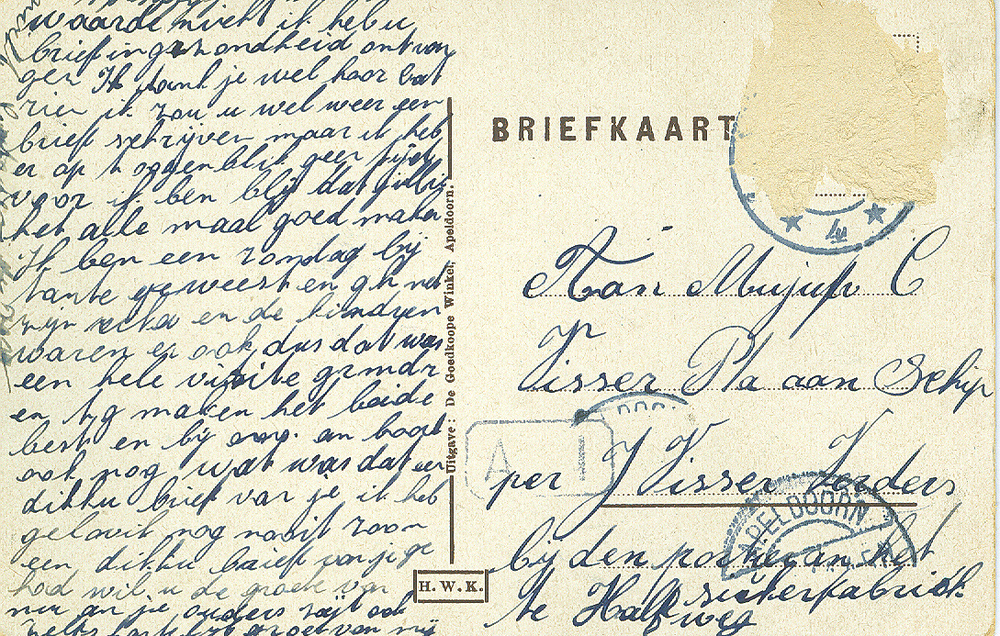 waarde nicht ik heb u
brief in gezondheid ontvan
gen Ik dank je wel hoor
ik zou u wel weer een
brief schrijven maar ik heb
er op t oogenblik geen tijd
voor ik ben blij dat jullie
het alle maal goed maken
Ik ben een zondag bij
tante geweest en
zijn en de kinderen
waren er ook dus dat was
een hele visite
en maken het beide
best en bij an boord
ook nog wat was dat een
dikku brief van je ik heb
gelooit nog nooit zoon
een dikku brief van je ge
had wil u de groete van
mij an je ouders ook
groet van mij
BRIEFKAART
Uitgave: De Goedkoope Winkel, Apeldoorn.
H.W.K.
Aan Mujufr C
Visser Pa aan Schip
per J Visser Verders
bij den portier van het
suikerfabriek
te Halfweg
A I
APELDOORN